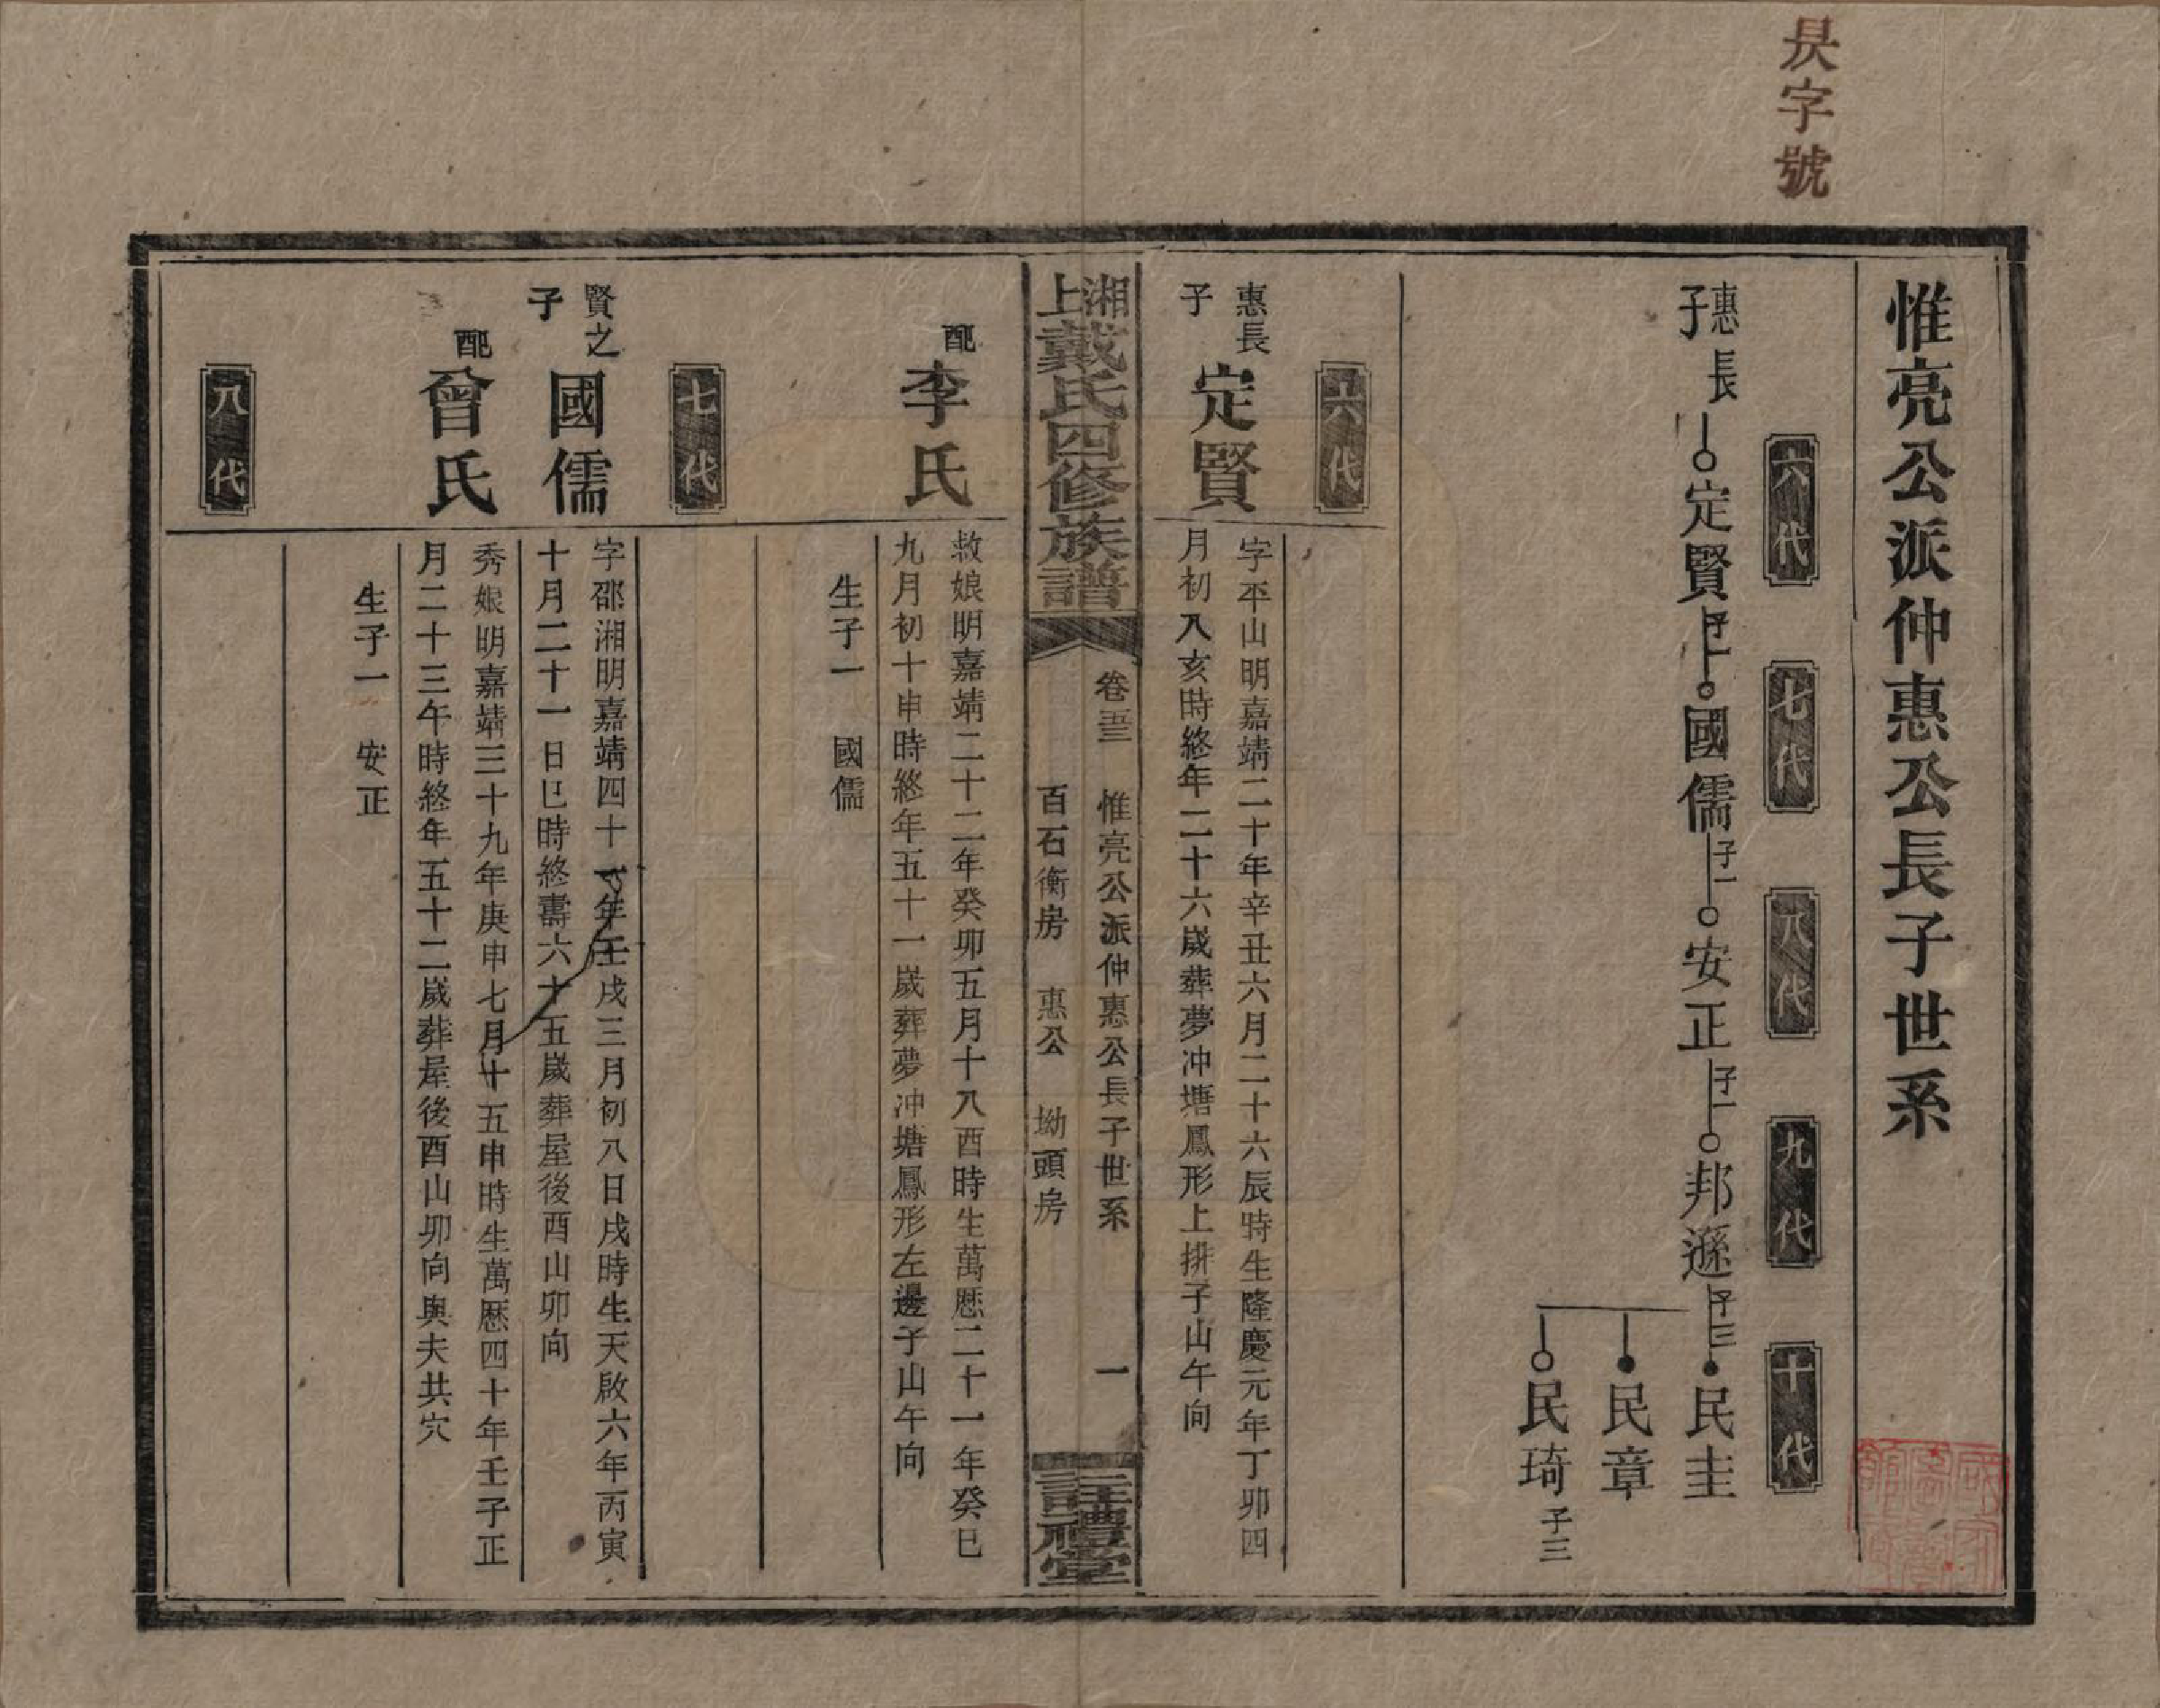 長字號
惟亮公派仲惠公長子世系
六代
七代
八代
九代
十代
惠長子
定賢
子一
國儒
子一
安正
子一
邦遜
子三
民圭
民章
民琦
子三
六代
惠長子
定賢
字平山明嘉靖二十年辛丑六月二十六辰時生隆慶元年丁卯四
月初八亥時終年二十六歲葬夢冲塘鳳形上排子山午向
湘上戴氏四修族譜
卷三
惟亮公派仲惠公長子世系
一
百石衡房 惠公 坳頭房
註禮堂
配
李氏
救娘明嘉靖二十二年癸卯五月十八酉時生萬厯二十一年癸巳
九月初十申時終年五十一歲葬夢冲塘鳳形左邊子山午向
生子一 國儒
七代
賢之子
國儒
字邵湘明嘉靖四十一年壬戌三月初八日戌時生天啟六年丙寅
十月二十一日巳時終壽六十五歲葬屋後酉山卯向
配
曾氏
秀娘明嘉靖三十九年庚申七月十五申時生萬厯四十年壬子正
月二十三午時終年五十二歲葬屋後酉山卯向與夫共穴
生子一 安正
八代